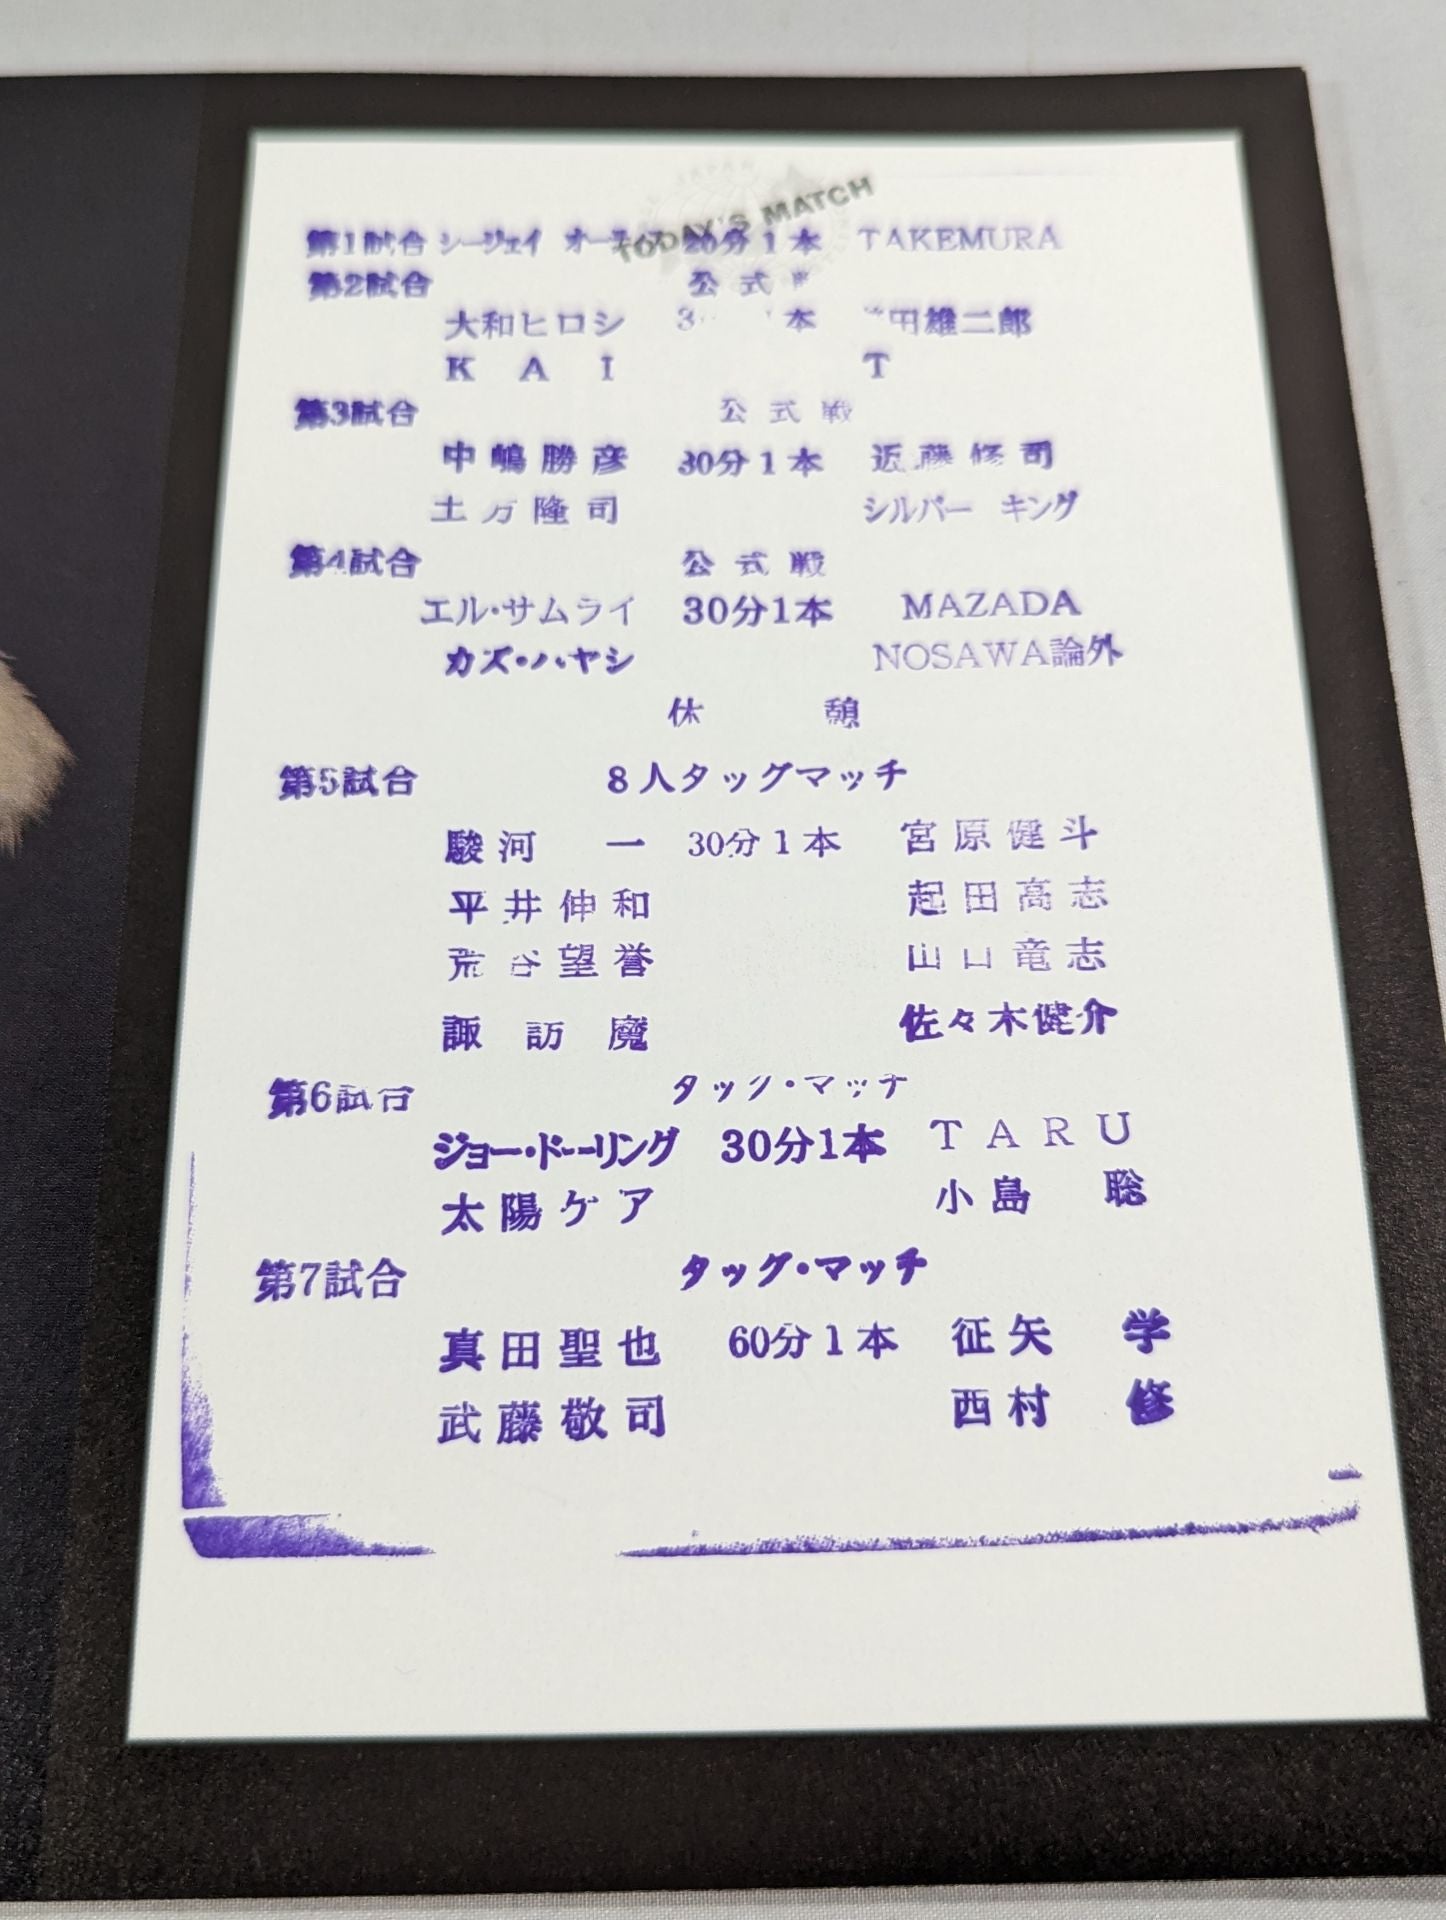 TODAY'S MATCH
第1試合 シージェイ 20分1本 TAKEMURA
第2試合 公式
大和ヒロシ 本 田雄二郎
KAI T
第3試合 公式戦
中嶋勝彦 30分1本 近藤修司
土方隆司 シルバー キング
第4試合 公式戦
エル・サムライ 30分1本 MAZADA
カズ・ハヤシ NOSAWA論外
休憩
第5試合 8人タッグマッチ
駿河一 30分1本 宮原健斗
平井伸和 起田高志
荒谷望誉 山口竜志
諏訪魔 佐々木健介
第6試合 タッグ・マッチ
ジョー・ドーリング 30分1本 TARU
太陽ケア 小島聡
第7試合 タッグ・マッチ
真田聖也 60分1本 征矢学
武藤敬司 西村修